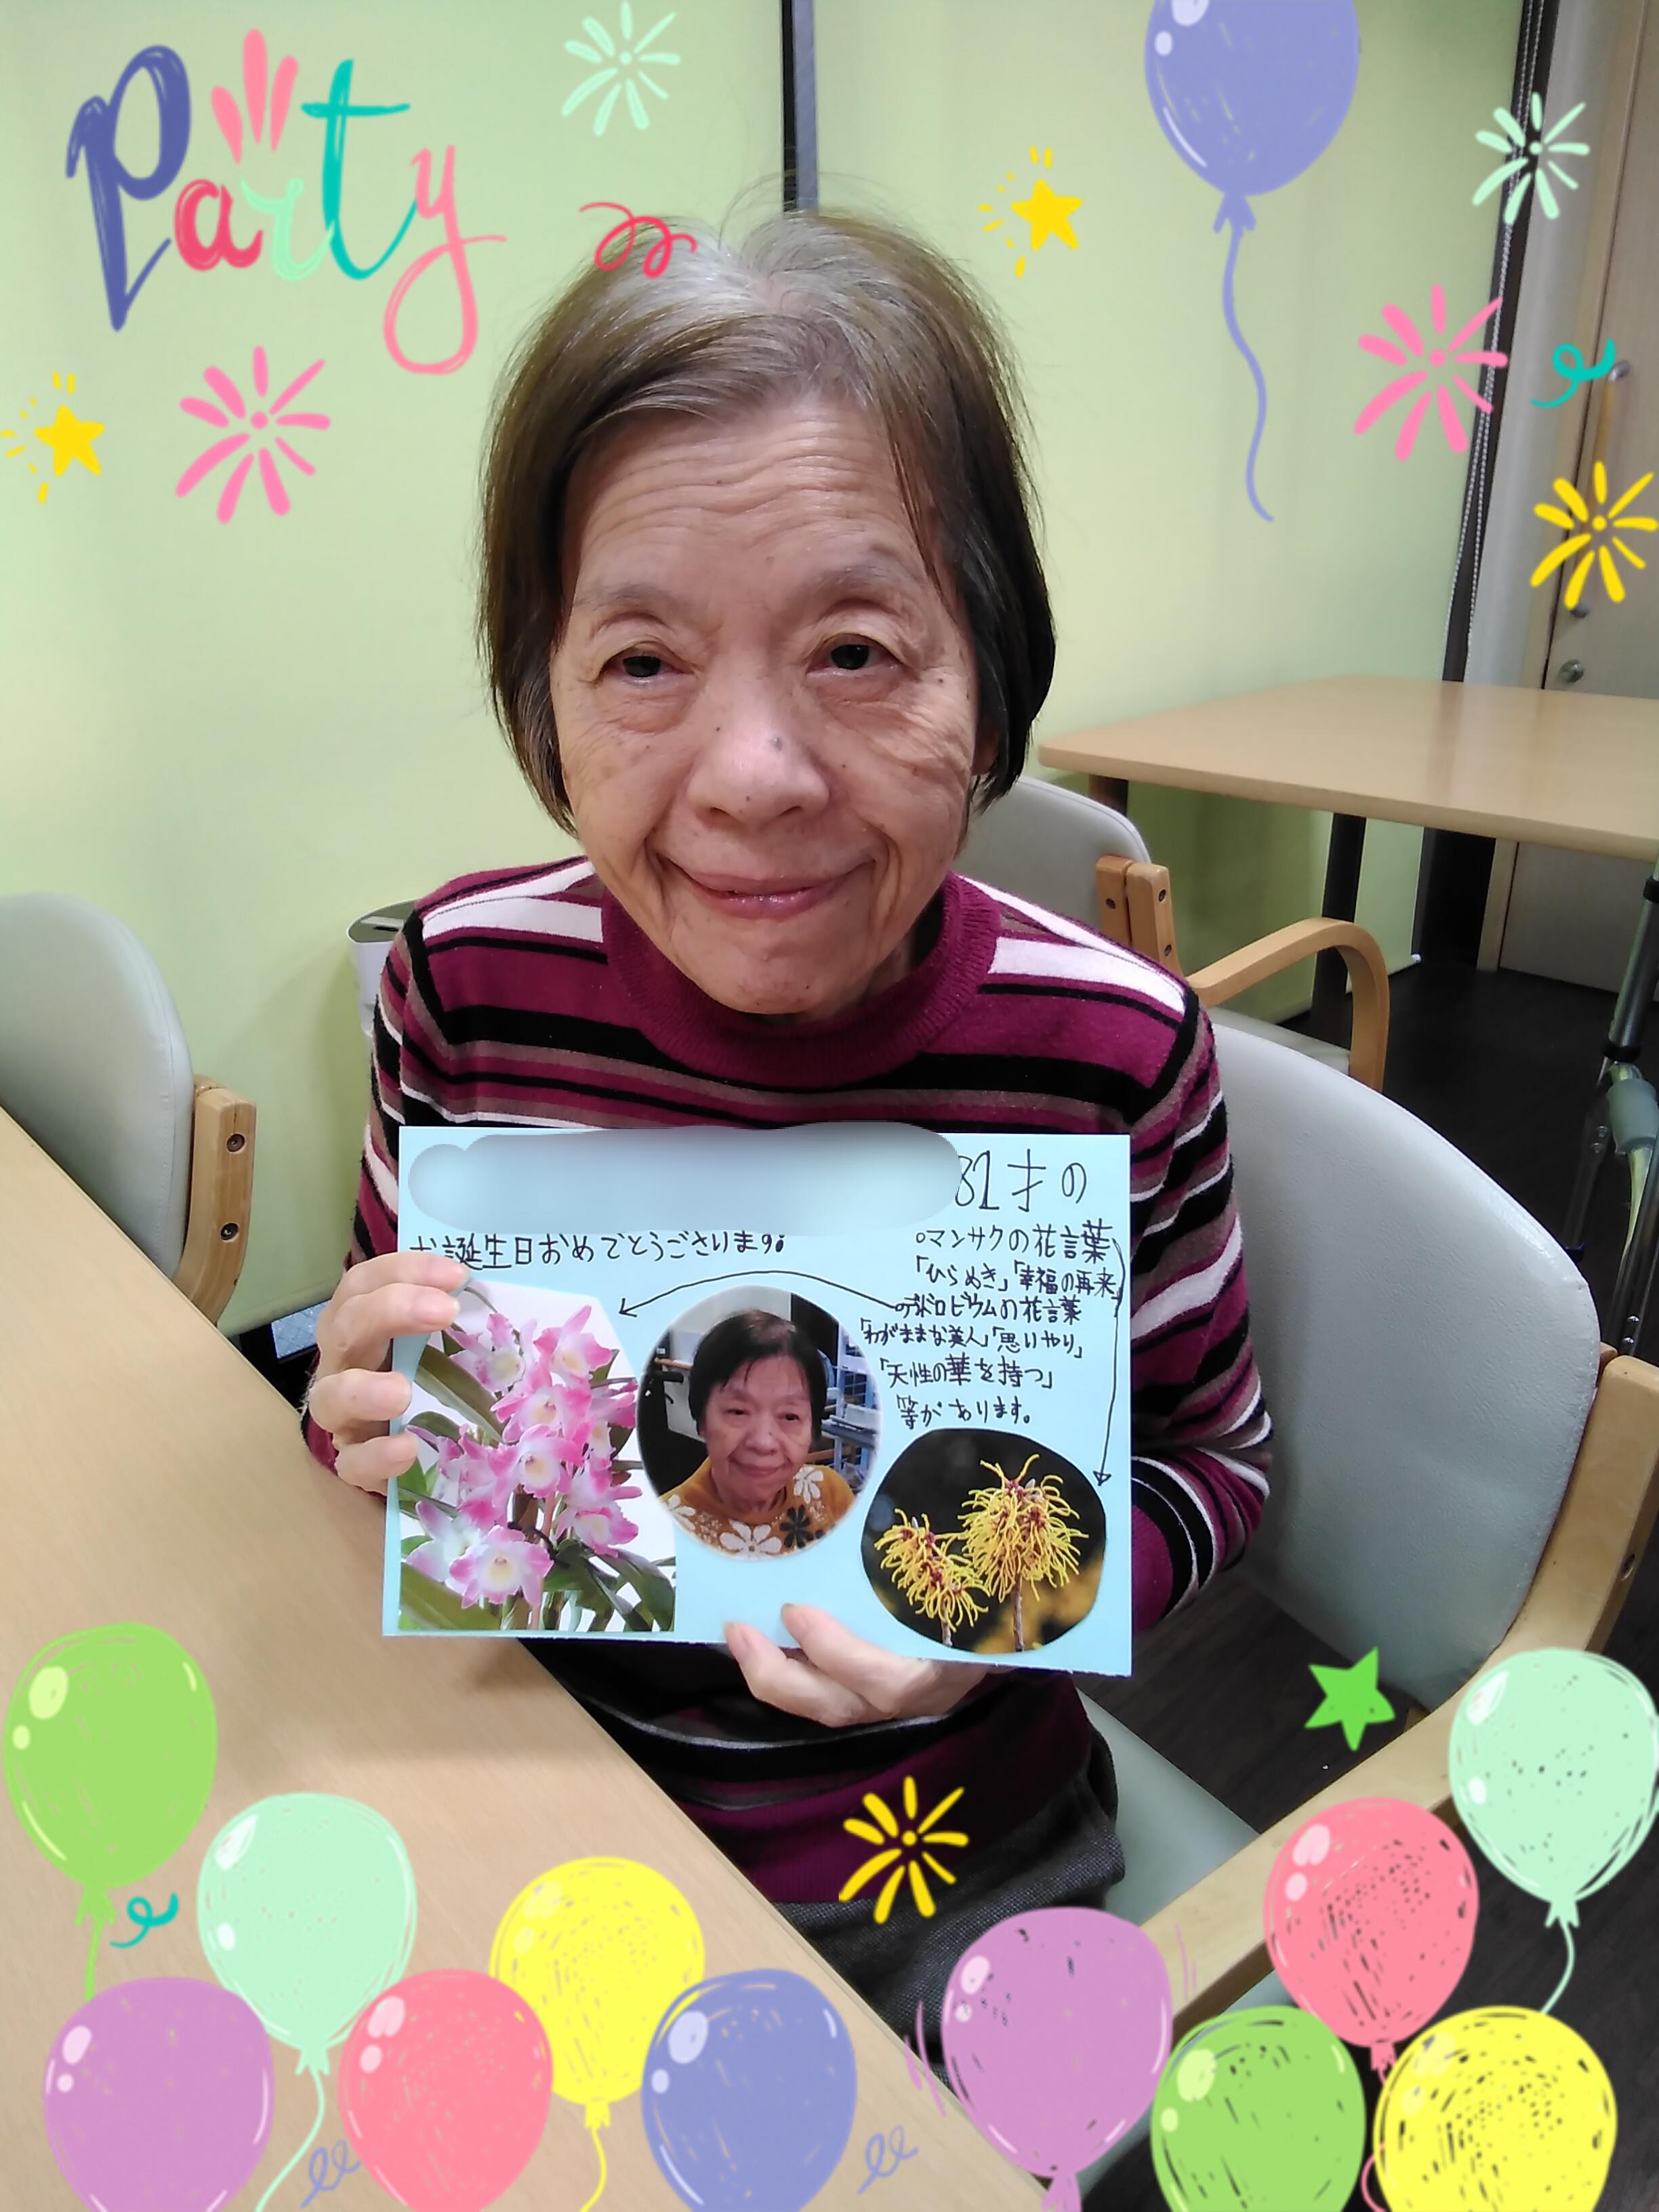 Party
81才の
お誕生日おめでとうございます
○マンサクの花言葉
「ひらめき」「幸福の再来」
の花言葉
「わがままな美人」「思いやり」
「天性の華を持つ」
等があります。